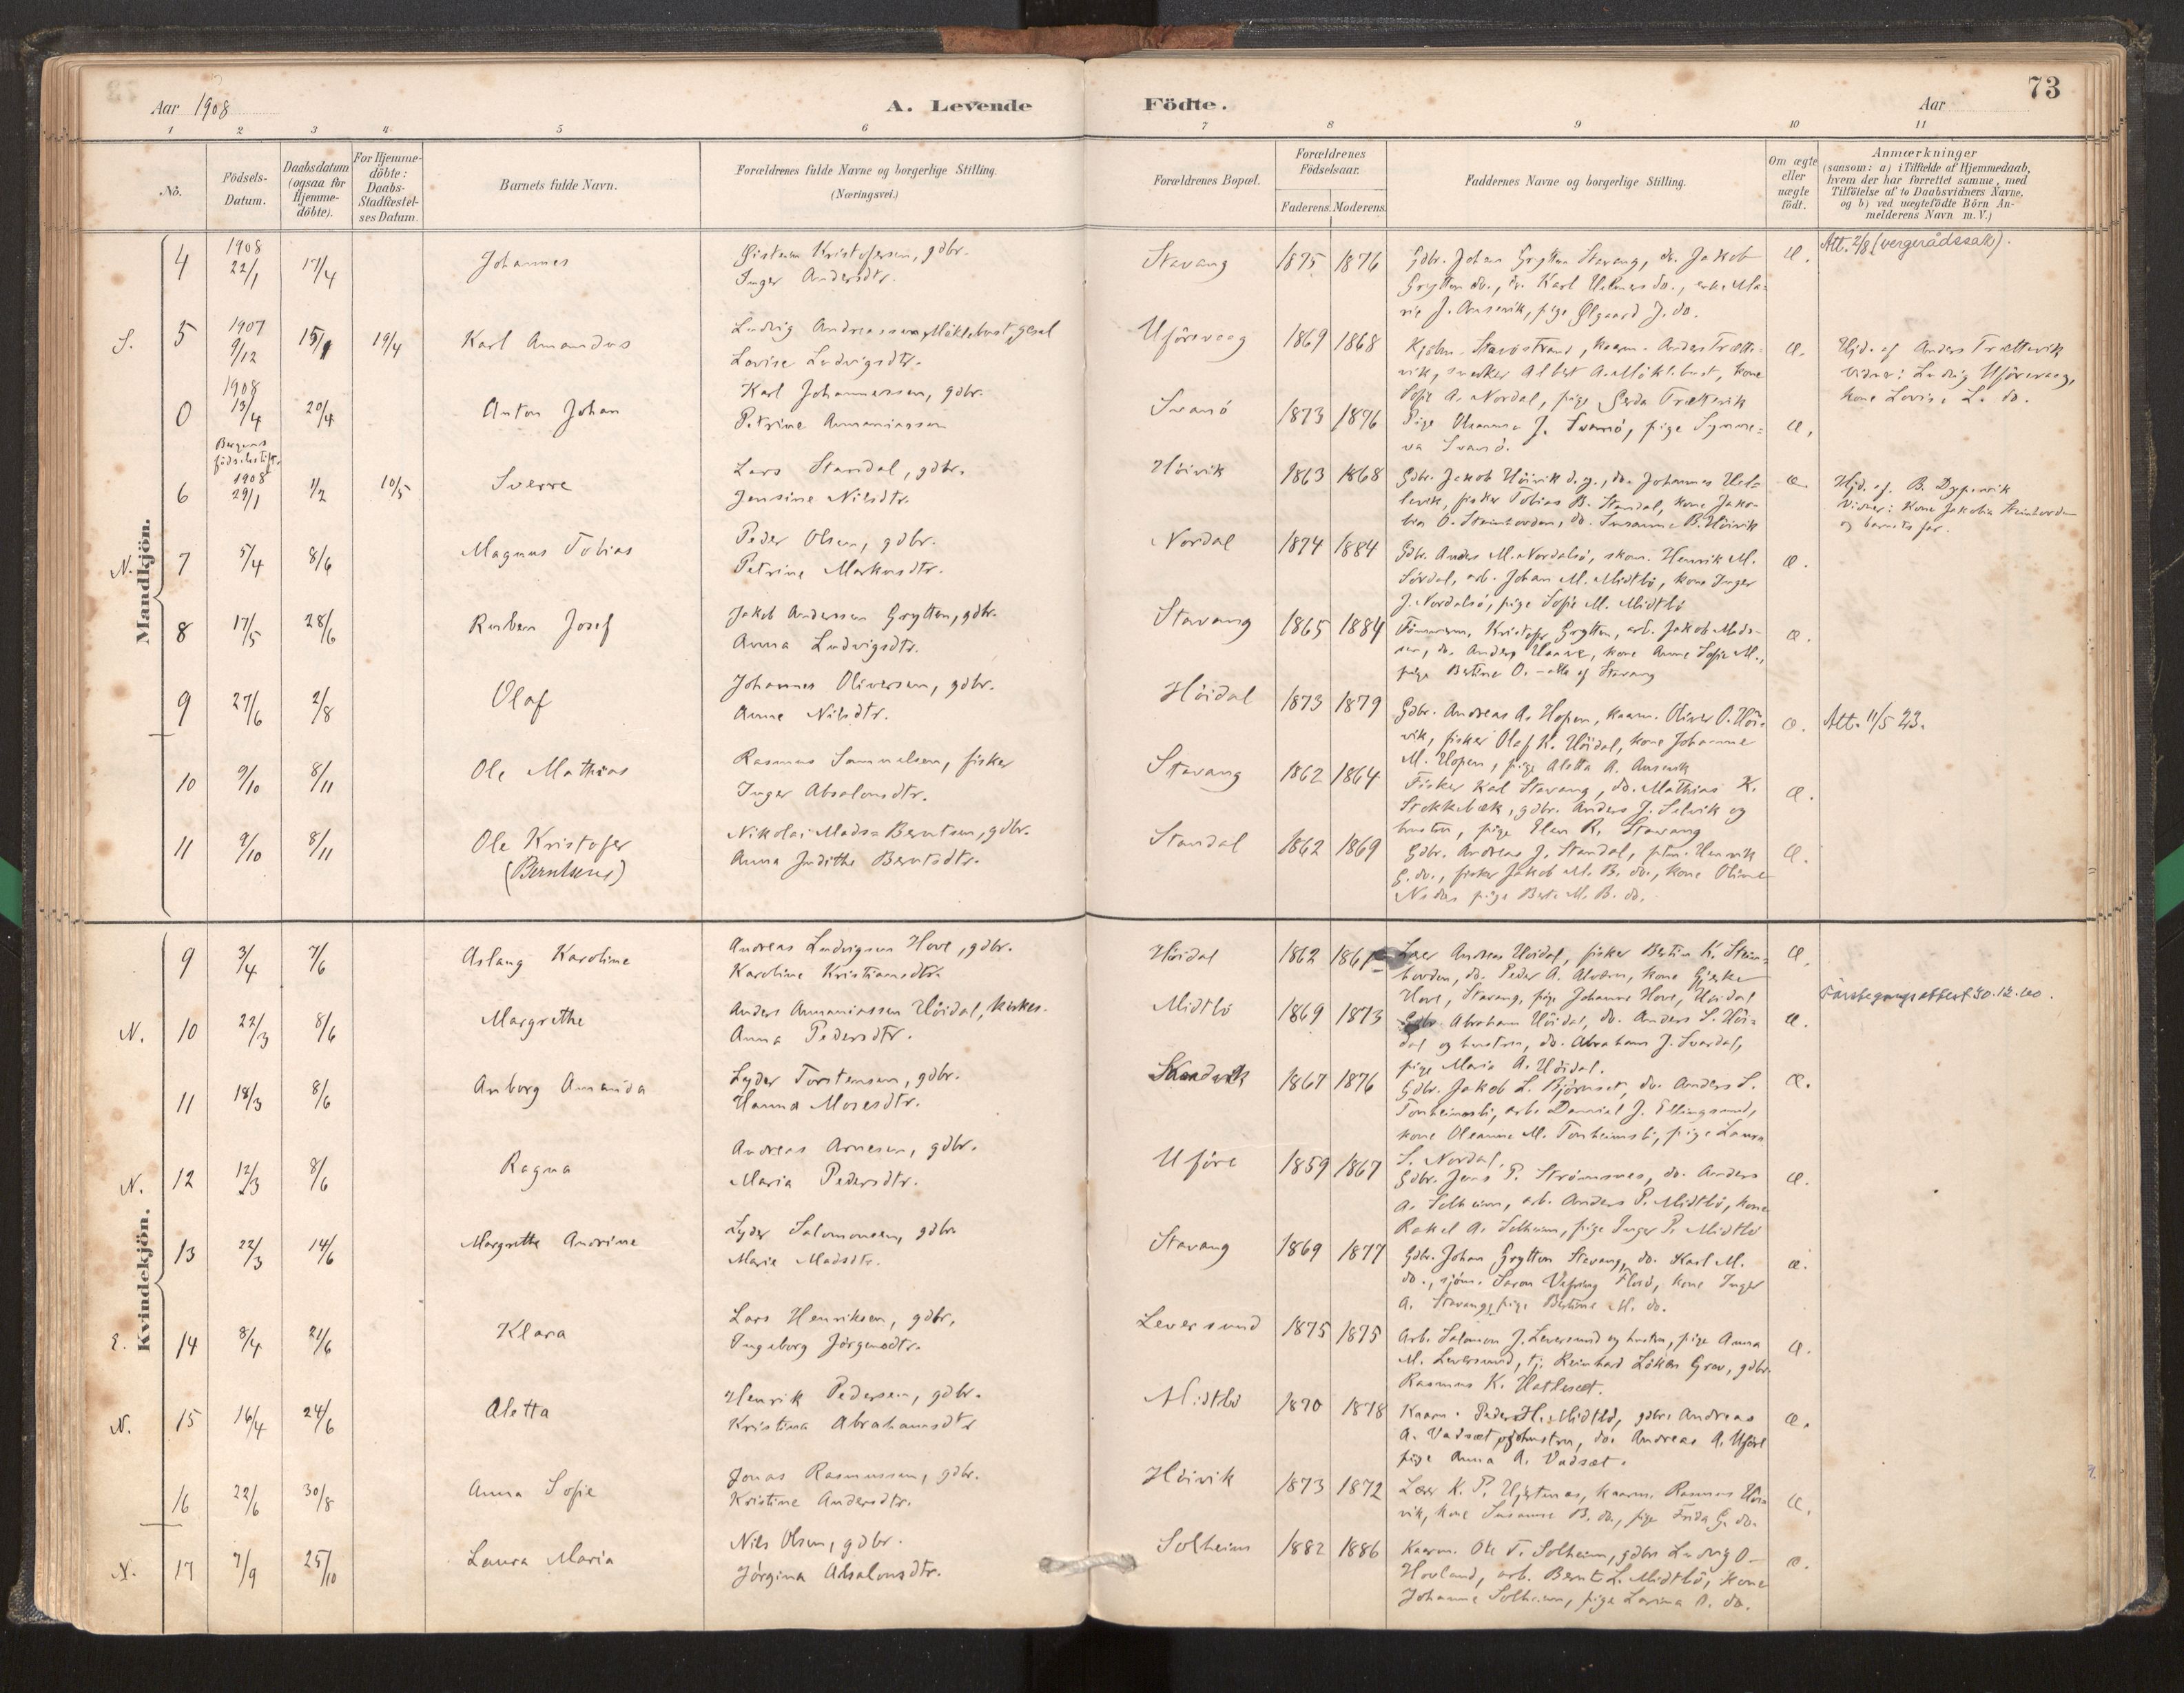 73
Aar 1908
A. Levende
Födte.
Aar
1 2 3 4 5 6 7 8 9 10 11
No.
Födsels-
Datum.
Daabsdatum
(ogsaa for
Hjemme-
döbte).
For Hjemme-
döbte:
Daabs-
Stadfæstel-
ses Datum.
Barnets fulde Navn.
Forældrenes fulde Navne og borgerlige Stilling.
(Næringsvei.)
Forældrenes Bopæl.
Forældrenes
Födselsaar.
Faderens. Moderens.
Faddernes Navne og borgerlige Stilling.
Om ægte
eller
uægte
födt.
Anmærkninger
(saasom: a) i Tilfælde af Hjemmedaab,
hvem der har forrettet samme, med
Tilföielse af to Daabsvidners Navne,
og b) ved uægtefödte Börn An-
melderens Navn m. V.)
Mandkjön.
4
1908
22/1
17/4
Johannes
Øistein Kristofersen, gdbr.
Inger Andersdtr.
Stavang
1875 1876
Gdbr. Johan Grytten Stavang, do. Jakob
Grytten do., Karl Helmer do.,
rie J. Ausevik, pige Olgaard J. do.
Æ.
Att. 2/8 (vergerådssak).
S. 5
1907
9/12
15/1
19/4
Karl Amandus
Ludvig Andreassen Möklebust, gesel
Lovise Ludvigsdtr.
Uförevaag
1869 1868
Stavöstrand, kaarm. Anders Trætte-
vik, snedker Albert A. Möklebust, kone
Sofie A. Nordal, pige Gerda Trættevik
Æ.
Hjd. af Anders Trættevik
Vidner: Ludvig Uförevaag,
kone Lovise L. do.
0
1908
13/4
20/4
Bergens
födselsstift.
Anton Johan
Karl Johannessen, gdbr.
Petrine Annaniassen
Svanö
1873 1876
Pige Hanna J. Svanö, pige Synne-
va Svanö.
Æ.
6
1908
29/1
1/2
10/5
Sverre
Lars Standal, gdbr.
Jensine Nilsdtr.
Höivik
1863 1868
Gdbr. Jakob Höivik d.y., do. Johannes Hel-
levik, fisker Tobias B. Standal, kone Jako-
bia O. Steinhovden, do. Susanne B. Höivik
Æ.
Hjd. af. B. Dypevik
Vidner: Kone Jakobia Steinhovden
og barnets far.
N. 7
5/4
8/6
Magnus Tobias
Peder Olsen, gdbr.
Petrine Markusdtr.
Nordal
1874 1884
Gdbr. Anders M. Nordalsö, skom. Henrik M.
Sördal, arb. Johan M. Midtbö, kone Inger
J. Nordalsö, pige Sofie M. Midtbö
Æ.
8
17/5
28/6
Ruben Josef
Jakob Anderssen Grytten, gdbr.
Anna Ludvigsdtr.
Stavang
1865 1884
Tömmerm. Kristofer Grytten, arb. Jakob Mads-
sen, do. Anders Haave, kone Anne Sofie M.,
pige Bertine O. - alle af Stavang
Æ.
9
27/6
2/8
Olaf
Johannes Oliversen, gdbr.
Anne Nilsdtr.
Höidal
1873 1879
Gdbr. Andreas A. Hopen, kaarm. Oliver O. Höi-
vik, fisker Olaf K. Höidal, kone Johanne
M. Hopen, pige Aletta A. Ausevik
Æ.
Att. 11/5 23.
10
9/10
8/11
Ole Mathias
Rasmus Samuelsen, fisker
Inger Absalonsdtr.
Stavang
1862 1864
Fisker Karl Stavang, do. Mathias K.
Stokkebæk, gdbr. Anders J. Selvik og
hustru, pige Elen R. Stavang
Æ.
11
9/10
8/11
Ole Kristofer
(Berntsens)
Nikolai Mads. Berntsen, gdbr.
Anna Judithe Berntsdtr.
Standal
1862 1869
Gdbr. Andreas J. Standal, Henrik
G. do., fisker Jakob M. B. do., kone Oline
N. do. pige Berte M. B. do.
Æ.
Kvindekjön.
9
3/4
7/6
Aslaug Karoline
Andreas Ludvigsen Hove, gdbr.
Karoline Kristiansdtr.
Höidal
1862
Lærer Andreas Höidal, fisker Bertin K. Stein-
hovden, do. Peder A. Alværen, kone Gjerke
Hove, Stavang, pige Johanne Hove, Höidal
Æ.
Förstegangsattest 30.12.60.
N. 10
22/3
8/6
Margrethe
Anders Annaniassen Höidal, kirkes.
Anna Pedersdtr.
Midtbö
1869 1873
Gdbr. Abraham Höidal, do. Anders S. Höi-
dal og hustru, do. Abraham J. Svardal,
pige Maria A. Höidal.
Æ.
11
18/3
8/6
Anborg Amanda
Lyder Torstensen, gdbr.
Hanna Mosesdtr.
Sandvik
1867 1876
Gdbr. Jakob L. Björnset, do. Anders S.
Tonheimsli, arb. Daniel J. Ellingsund,
kone Oleanne M. Tonheimsli, pige Laura
S. Nordal.
Æ.
N. 12
12/3
8/6
Ragna
Andreas Arnesen, gdbr.
Maria Pedersdtr.
Uföre
1859 1867
Gdbr. Jens P. Strömsnes, do. Anders
A. Solheim, arb. Anders P. Midtbö, kone
Rakel A. Solheim, pige Inger P. Midtbö
Æ.
13
22/3
14/6
Margrethe Andrine
Lyder Salomonsen, gdbr.
Marie Madsdtr.
Stavang
1869 1877
Gdbr. Johan Grytten Stavang, do. Karl M.
do., sjöm. Saron Vefring Florö, kone Inger
A. Stavang, pige Bertine M. do.
Æ.
E. 14
8/4
21/6
Klara
Lars Henriksen, gdbr.
Ingeborg Jörgensdtr.
Leversund
1875 1875
Arb. Salomon J. Leversund og hustru, pige Anna
M. Leversund, tj. Reinhard Löken Grov, gdbr.
Rasmus K. Hatleset.
Æ.
N. 15
16/4
24/6
Aletta
Henrik Pedersen, gdbr.
Kristina Abrahamsdtr
Midtbö
1870 1878
Kaarm. Peder H. Midtbö, gdbr. Andreas
A. Vadset og hustru, do. Andreas A. Uföre
pige Anna A. Vadset.
Æ.
16
22/6
30/8
Anna Sofie
Jonas Rasmussen, gdbr.
Kristine Andersdtr.
Höivik
1873 1872
Lærer K. P. Hjertenes, kaarm. Rasmus Höi-
vik, kone Susanne B. do., pige Frida G. do.
Æ.
N. 17
7/9
25/10
Laura Maria
Nils Olsen, gdbr.
Jörgina Absalonsdtr.
Solheim
1882 1886
Kaarm. Ole T. Solheim, gdbr. Ludvig O.
Hovland, arb. Bernt L. Midtbö, kone
Johanne Solheim, pige Lavina A. do.
Æ.